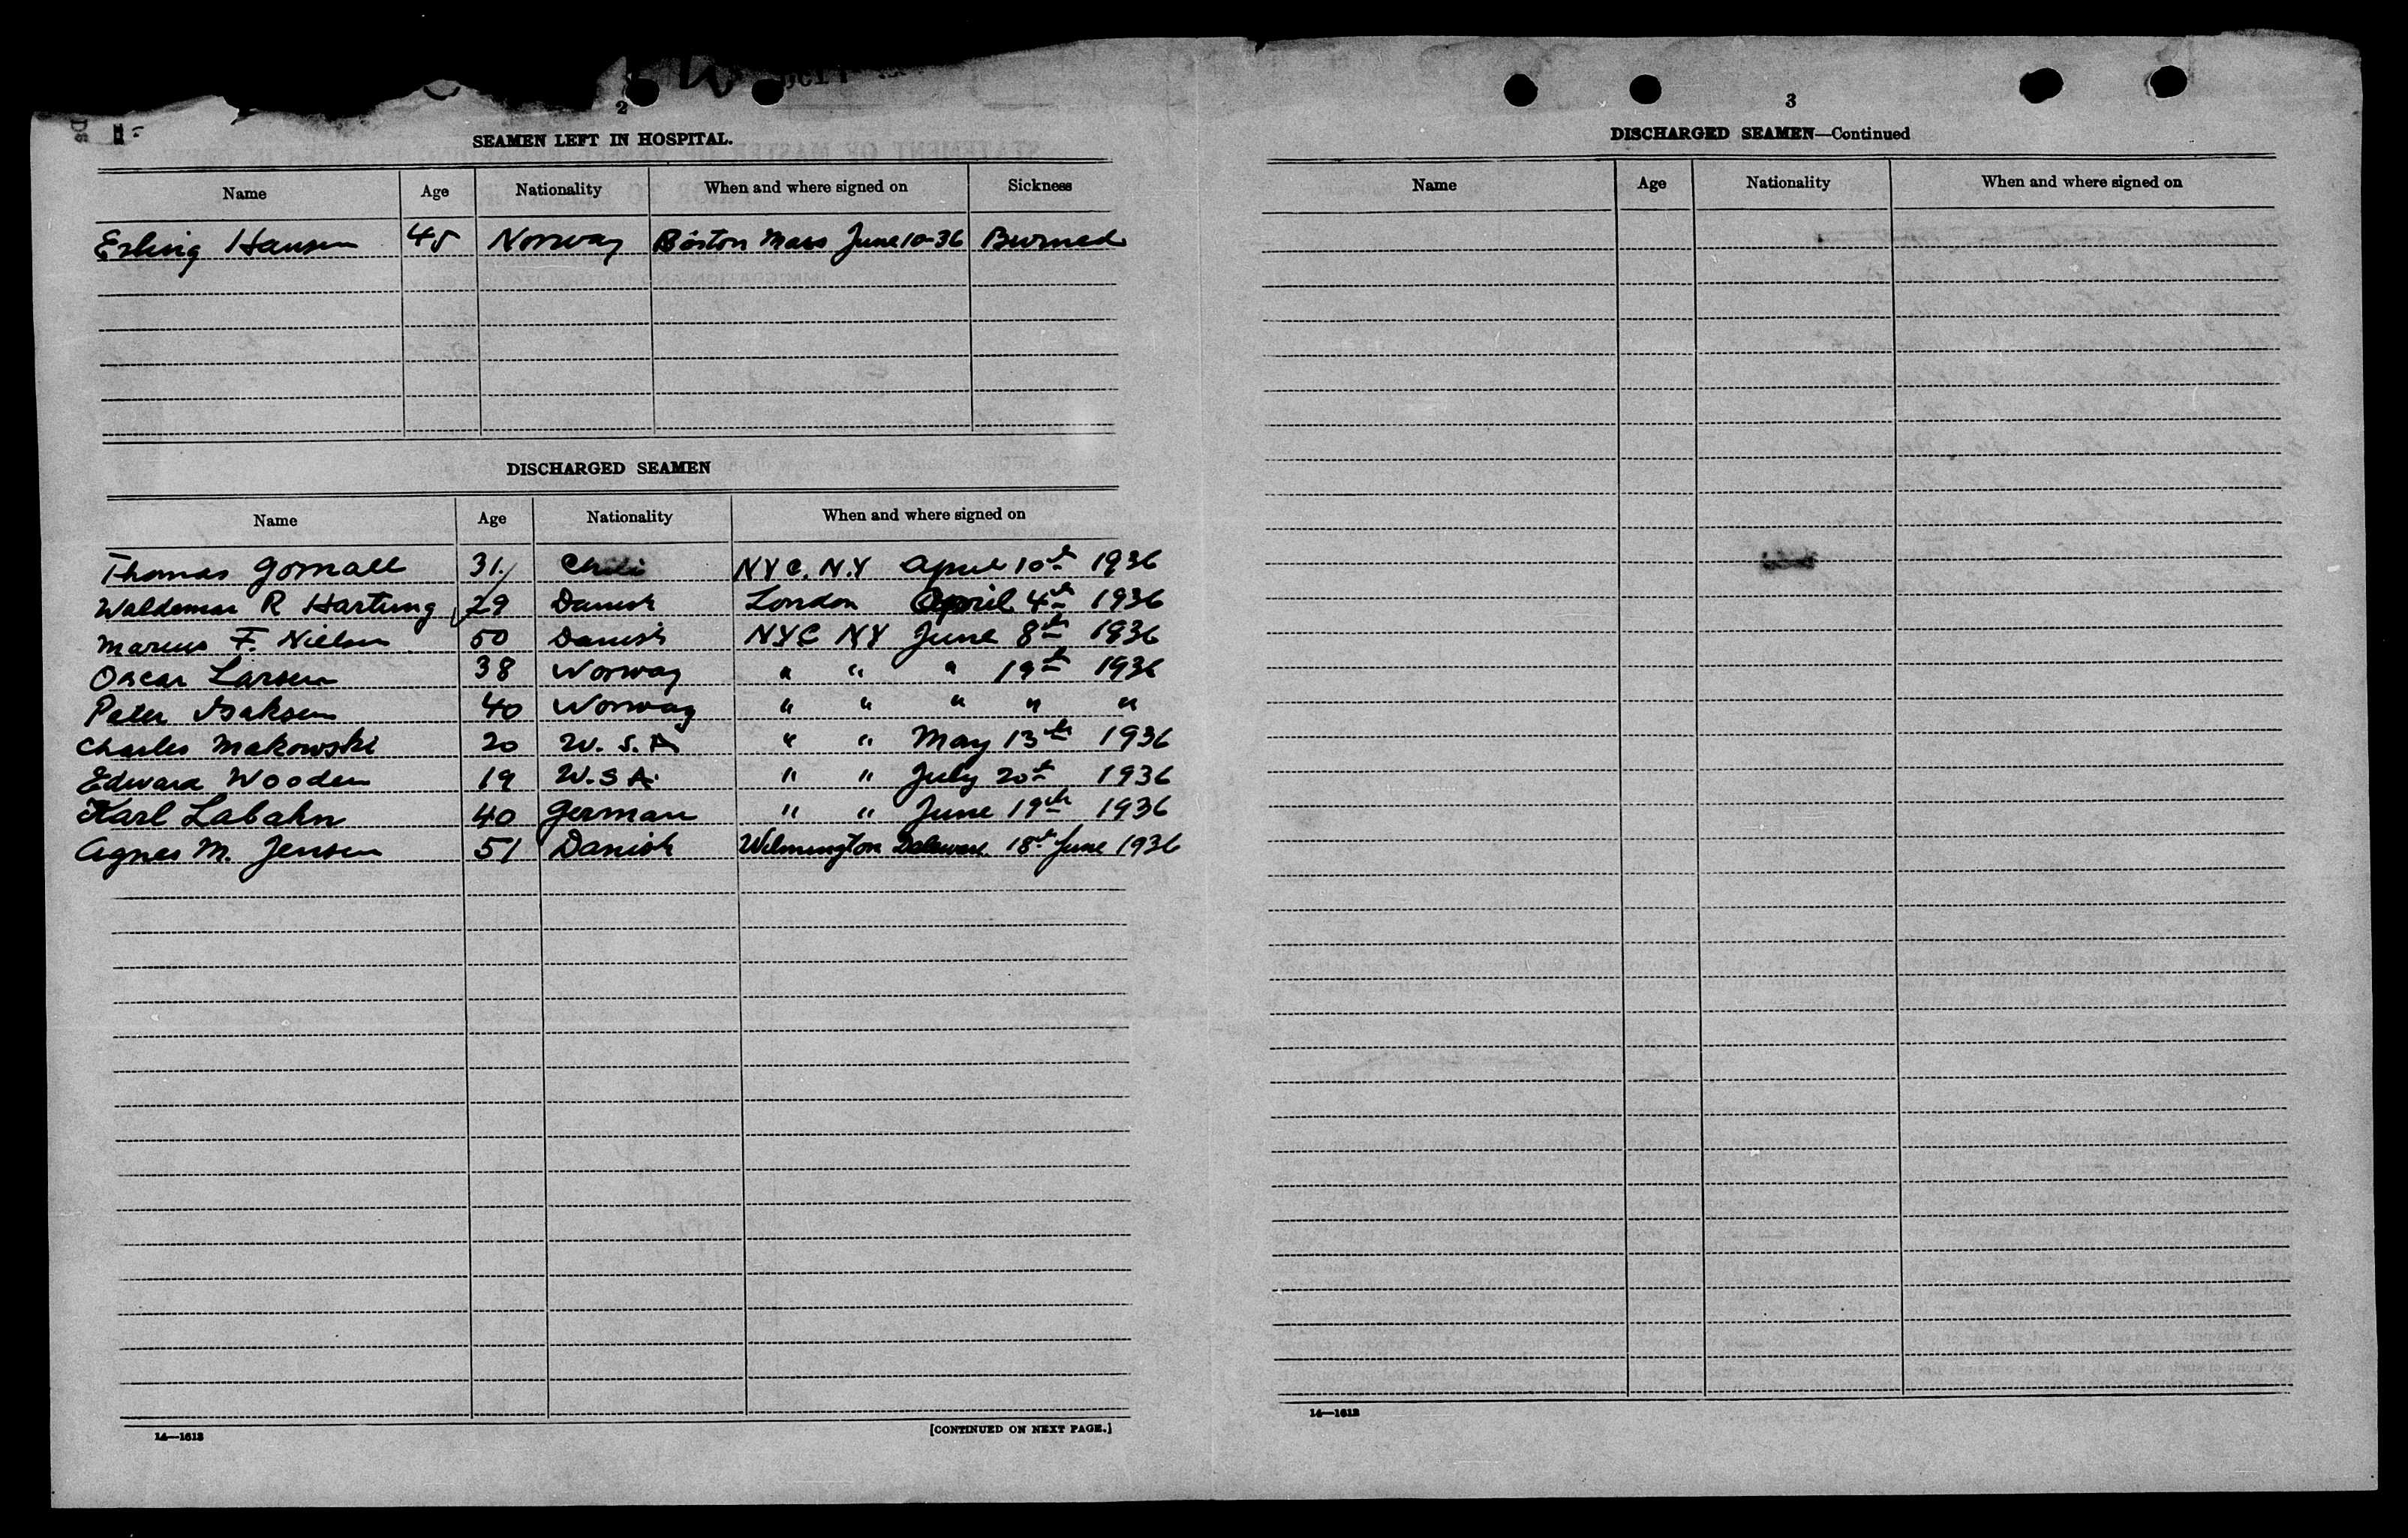 2
SEAMEN LEFT IN HOSPITAL.
Name Age Nationality When and where signed on Sickness
Erling Hansen 45 Norway Boston Mass June 10-36 Burned
DISCHARGED SEAMEN
Name Age Nationality When and where signed on
Thomas Gornall 31 Chili NYC. N.Y April 10th 1936
Waldemar R Hartung 29 Danish London April 4th 1936
Marcus F. Nielsen 50 Danish NYC NY June 8th 1936
Oscar Larsen 38 Norway " " " 19th 1936
Peter Isaksen 40 Norway " " " " "
Charles Makowski 20 U.S.A " " May 13th 1936
Edward Wooden 19 U.S A. " " July 20th 1936
Karl Labahn 40 German " " June 19th 1936
Agnes M. Jensen 51 Danish Wilmington Delaware 18th June 1936
14—1613
[CONTINUED ON NEXT PAGE.]
3
DISCHARGED SEAMEN—Continued
Name Age Nationality When and where signed on
14—1613